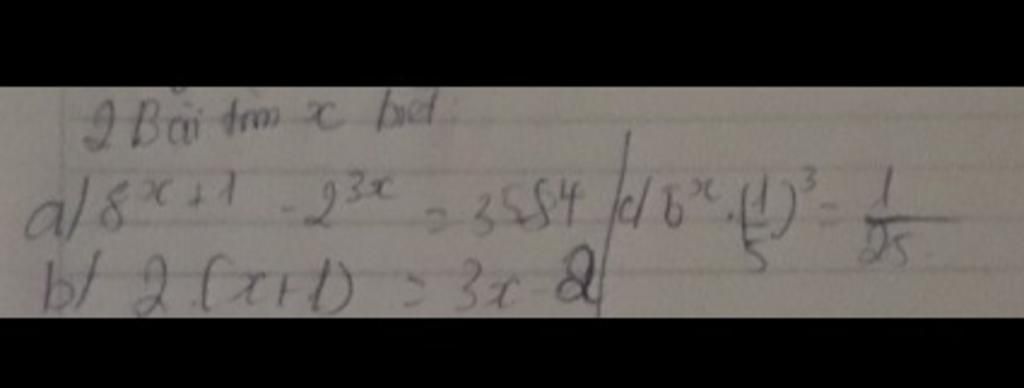 2 Bài tìm x biết:
a/ 8^{x+1} - 2^{3x} = 3584
b/ 2.(x+1) = 3x - 2
c/ 5^x . (1/5)^3 = 1/25